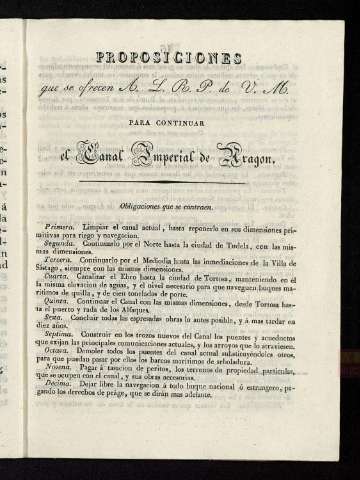 PROPOSICIONES
que se ofrecen A. L. R. P. de V. M.
PARA CONTINUAR
el Canal Imperial de Aragon.
Obligaciones que se contraen.
Primera. Limpiar el canal actual, hasta reponerlo en sus dimensiones pri-
mitivas para riego y navegacion.
Segunda. Continuarlo por el Norte hasta la ciudad de Tudela, con las mis-
mas dimensiones.
Tercera. Continuarlo por el Mediodia hasta las inmediaciones de la Villa de
Sástago, siempre con las mismas dimensiones.
Cuarta. Canalizar el Ebro hasta la ciudad de Tortosa, manteniendo en él
la misma elevacion de aguas, y el nivel necesario para que naveguen buques ma-
rítimos de quilla, y de cien toneladas de porte.
Quinta. Continuar el Canal con las mismas dimensiones, desde Tortosa has-
ta el puerto y rada de los Alfaques.
Sexta. Concluir todas las espresadas obras lo antes posible, y á mas tardar en
diez años.
Septima. Construir en los trozos nuevos del Canal los puentes y acueductos
que exijan las principales comunicaciones actuales, y los arroyos que lo atraviesen.
Octava. Demoler todos los puentes del canal actual substituyéndolos otros,
para que puedan pasar por ellos los barcos marítimos de arboladura.
Novena. Pagar á tasacion de peritos, los terrenos de propiedad particular,
que se ocupen con el canal, y sus obras accesorias.
Décima. Dejar libre la navegacion á todo buque nacional ó estrangero, pa-
gando los derechos de peage, que se dirán mas adelante.